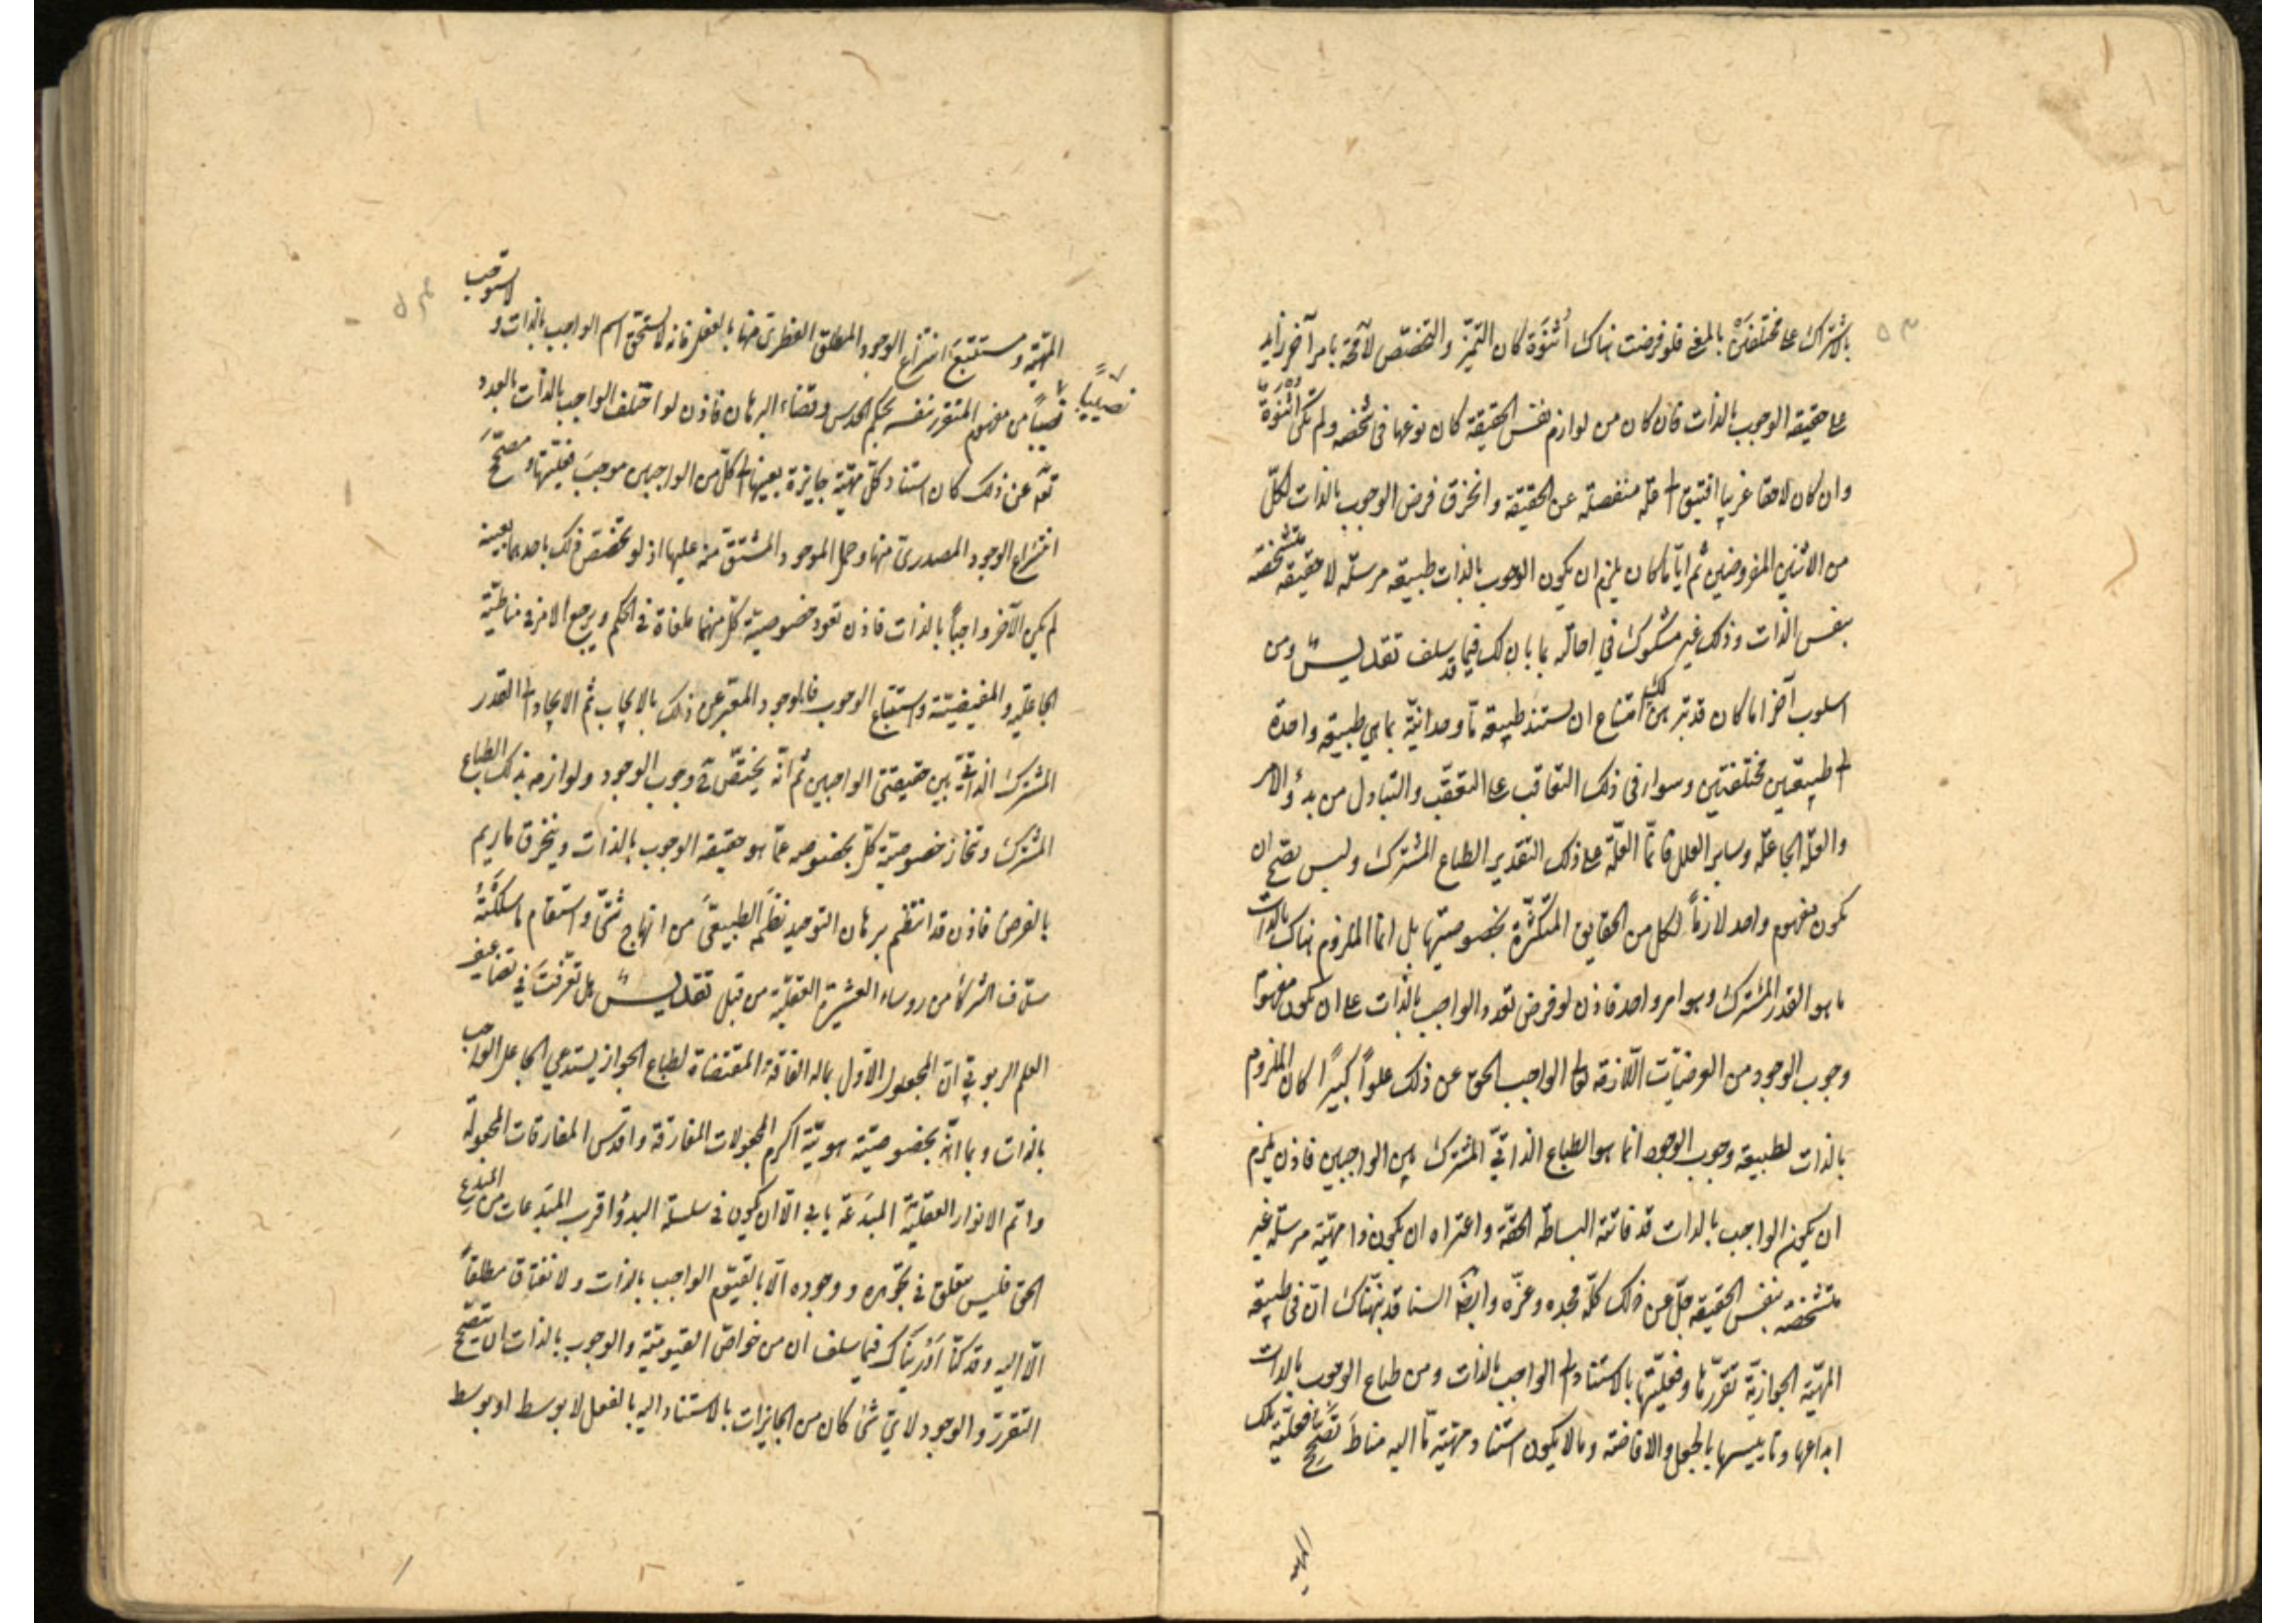 ٥٣
بالاشتراك على مختلفين بالمعنى فلو فرضت هناك اثنوة كان التميز والتخصص لا محة بامر آخر زايد
على حقيقة الوجوب بالذات فان كان من لوازم نفس الحقيقة كان نوعها في شخصه ولم تكن اثنوة
وان كان لاحقا غريبا افتيق الى علة منفصلة عن الحقيقة وانخرق فرض الوجوب بالذات لكل
من الاثنين المفروضين ثم ايا ما كان يلزم ان يكون الوجوب بالذات طبيعة مرسلة لا حقيقة متشخصة
بنفس الذات وذلك غير مشكوك في احالته بما بان لك فيما قد سلف تقديس ومن
اسلوب آخر اما كان قد تبرهن لك امتناع ان تستند طبيعة ما وحدانية بما هي طبيعة واحدة
الى طبيعتين مختلفتين وسواء في ذلك التعاقب على التعقب والتبادل من بدؤ الامر
والعلة الجاعلة وساير العلل فانما العلة على ذلك التقدير الطباع المشترك وليس يصح ان
يكون مفهوم واحد لازما لكل من الحقايق المتكثرة بخصوصيتها بل انما الملزوم هناك بالذات
ما هو القدر المشترك وهو امر واحد فاذن لو فرض تعدد الواجب بالذات على ان يكون مفهوم
وجوب الوجود من العرضيات اللازمة تعالى الواجب الحق عن ذلك علوا كبيرا كان الملزوم
بالذات لطبيعة وجوب الوجود انما هو الطباع الذاتي المشترك بين الواجبين فاذن يلزم
ان يكون الواجب بالذات قد فاتته البساطة الحقة واعتراه ان يكون ذا مهية مرسلة غير
متشخصة بنفس الحقيقة جل عن ذلك كله مجده وعزه وايضا السنا قد نبهناك ان في طبيعة
المهية الجوازية تقررها وفعليتها بالاستناد الى الواجب بالذات ومن طباع الوجوب بالذات
ابداعها وتاييسها بالجعل والافاضة وما لا يكون استناد مهية ما اليه مناط تصحح فعلية تلك
المهية
٥٤
المهية ومستتبع انتزاع الوجود المطلق الفطري منها بالفعل فانه لا يستحق اسم الواجب بالذات و لا يستوجب
نصيبا من مفهوم المتقرر بنفسه بحكم الحدس وقضاء البرهان فاذن لو اختلف الواجب بالذات بالعدد
نصيبا
تعه عن ذلك كان استناد كل مهية جايزة بعينها الى كل من الواجبين موجب فعليتها ومصحح
انتزاع الوجود المصدري منها وحمل الموجود المشتق منه عليها اذ لو تخصص ذلك باحدهما بعينه
لم يكن الآخر واجبا بالذات فاذن تعود خصوصية كل منهما ملغاة في الحكم ويرجع الامر في مناطية
الجاعلية والمفيضية واستتباع الوجوب فالوجود المعبر عن ذلك بالايجاب ثم الايجاد الى القدر
المشترك الذاتي بين حقيقتي الواجبين ثم انه يختص حق وجوب الوجود ولوازمه بذلك الطباع
المشترك وتنحاز خصوصية كل بخصوصه عما هو حقيقة الوجوب بالذات وينخرق ما ريم
بالفرض فاذن قد انتظم برهان التوحيد نظمه الطبيعي من انهاج شتى واستقام ما سلكته
سلاف الشركاء من روساء العشيرة العقلية من قبل تقديس هل تعرفت في تضاعيف
العلم الربوبي ان المجعول الاول بماله الفاقة المقتضاة لطباع الجواز يستدعي الجاعل الواجب
بالذات وبما انه بخصوصية هويته اكرم المجعولات المفارقة واقدس المفارقات المجعولة
واتم الانوار العقلية المبدعة يابى الا ان يكون في سلسلة البدؤ اقرب المبدعات من المبدع
الحق فليس يتعلق في تجوهره ووجوده الا بالقيوم الواجب بالذات ولا تفتاق مطلقا
الا اليه وقد كنا ادريناك فيما سلف ان من خواص القيومية والوجوب بالذات ان يتصحح
التقرر والوجود لاي شئ كان من الجايزات بالاستناد اليه بالفعل لا بوسط او بوسط